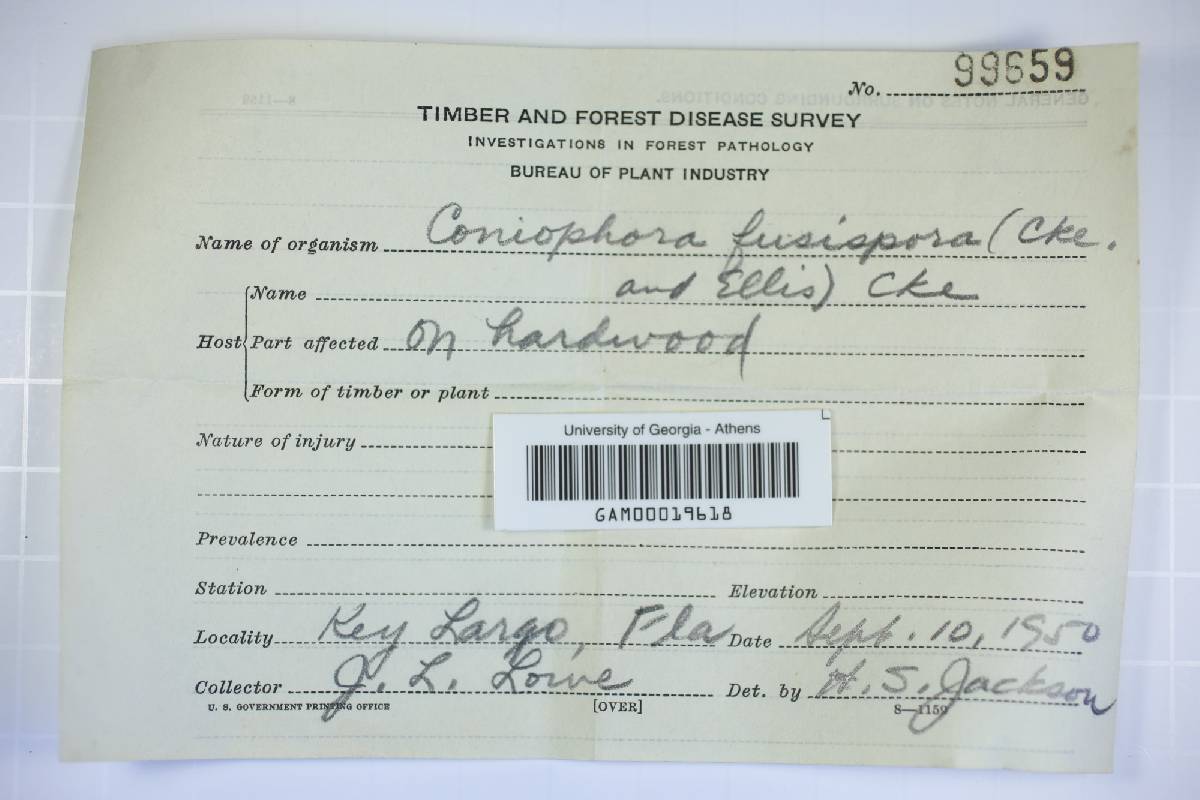 No. 99659
TIMBER AND FOREST DISEASE SURVEY
INVESTIGATIONS IN FOREST PATHOLOGY
BUREAU OF PLANT INDUSTRY
Name of organism Coniophora fusispora (Cke.
and Ellis) Cke
Host
Name
Part affected On hardwood
Form of timber or plant
Nature of injury
University of Georgia - Athens
GAM00019618
Prevalence
Station Elevation
Locality Key Largo, Fla Date Sept. 10, 1950
Collector J. L. Lowe Det. by H. S. Jackson
U. S. GOVERNMENT PRINTING OFFICE [OVER] 8—1159
8—1159
GENERAL NOTES ON SURROUNDING CONDITIONS.